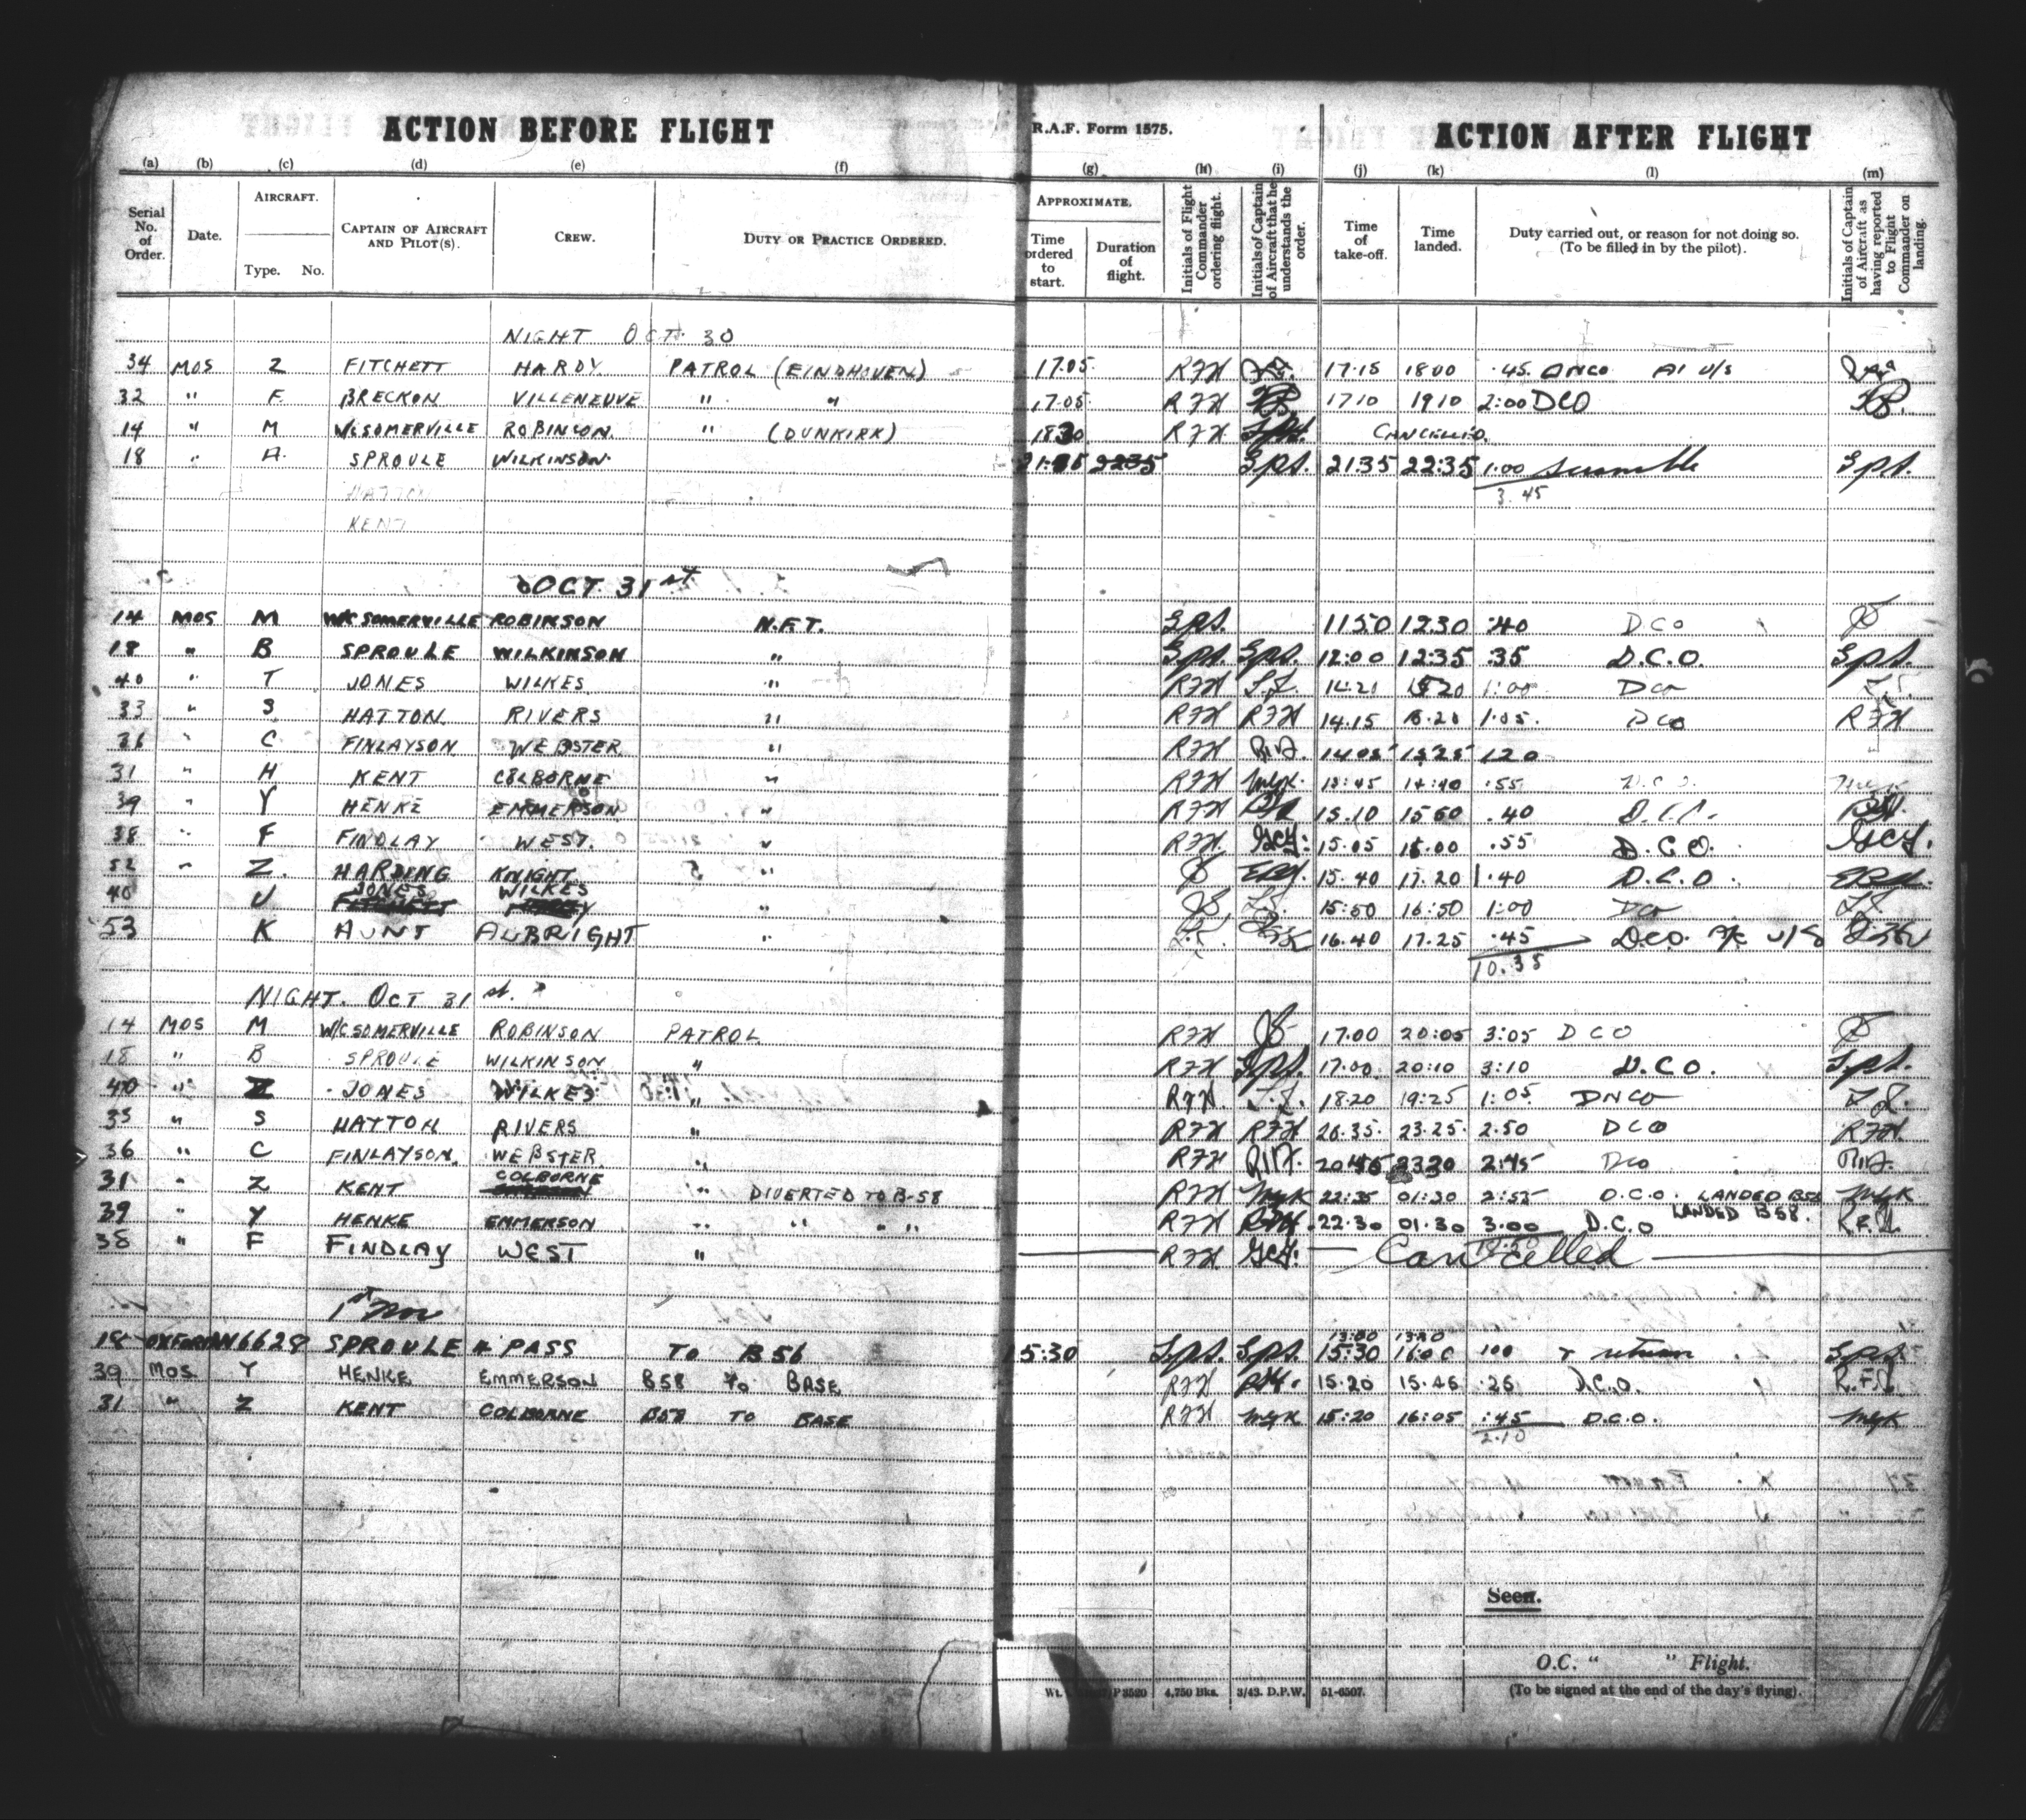 ACTION BEFORE FLIGHT R.A.F. Form 1575. ACTION AFTER FLIGHT
(a) (b) (c) (d) (e) (f) (g) (h) (i) (j) (k) (l) (m)
Serial No. of Order. Date. AIRCRAFT. Type. No. CAPTAIN OF AIRCRAFT AND PILOT(S). CREW. DUTY OR PRACTICE ORDERED. APPROXIMATE. Time ordered to start. Duration of flight. Initials of Flight Commander ordering flight. Initials of Captain of Aircraft that he understands the order. Time of take-off. Time landed. Duty carried out, or reason for not doing so. (To be filled in by the pilot). Initials of Captain of Aircraft as having reported to Flight Commander on landing.
NIGHT OCT 30
34 MOS Z FITCHETT HARDY PATROL (EINDHOVEN) 17.05 RFH 17.15 1800 .45 DNCO AI U/S
32 " F BRECKON VILLENEUVE " " 17.05 RFH 1710 1910 2:00 DCO
14 " M W/C SOMERVILLE ROBINSON " (DUNKIRK) 1830 RFH CANCELLED
18 " A SPROULE WILKINSON 21:35 22:35 1:00 Scramble
3.45
HATTON
KENT
OCT. 31st
14 MOS M W/C SOMERVILLE ROBINSON N.F.T. 1150 1230 .40 DCO
18 " B SPROULE WILKINSON " 12:00 12:35 .35 D.C.O.
40 " T JONES WILKES " RFH 14.20 1520 1:00 DCO
33 " S HATTON RIVERS " RFH RFH 14.15 15.20 1.05. DCO RFH
36 " C FINLAYSON WEBSTER " RFH 1405 1525 120
31 " H KENT COLBORNE " RFH MGK 13:45 14:40 .55 D.C.O.
39 " Y HENKE EMMERSON " RFH 15.10 1550 .40 D.C.O.
38 " F FINDLAY WEST. " RFH 15.05 16.00 .55 D.C.O.
52 " Z. HARDING KNIGHT " 15.40 17.20 1.40 D.C.O.
40 U JONES WILKES " 15:50 16:50 1:00 DCO
53 K HUNT ALBRIGHT " 16.40 17.25 .45 DCO. A/C U/S
10.35
NIGHT. OCT 31st.
14 MOS M W/C SOMERVILLE ROBINSON PATROL RFH 17.00 20:05 3:05 DCO
18 " B SPROULE WILKINSON " RFH 17.00 20:10 3:10 D.C.O.
40 " Z JONES WILKES " RFH 18.20 19:25 1:05 DNCO
33 " S HATTON RIVERS " RFH RFH 20.35 23.25 2.50 DCO RFH
36 " C FINLAYSON WEBSTER " RFH 2045 2330 2:45 DCO
31 " Z KENT COLBORNE " DIVERTED TO B-58 RFH MGK 22:35 01:30 2:55 D.C.O. LANDED B58 MGK
39 " Y HENKE EMMERSON " " " " RFH 22.30 01.30 3.00 D.C.O LANDED B58.
38 " F FINDLAY WEST " RFH Cancelled
1st Nov
18 OXFORD SPROULE + PASS TO B56 15:30 15:30 16:00 100 + return
39 MOS. Y HENKE EMMERSON B58 TO BASE RFH 15.20 15.46 .26 D.C.O.
31 " Z KENT COLBORNE B58 TO BASE RFH MGK 15:20 16:05 :45 D.C.O. MGK
2.10
Seen.
O.C. " " Flight.
4,750 Bks. 3/43. D.P.W. 51-6507. (To be signed at the end of the day's flying).